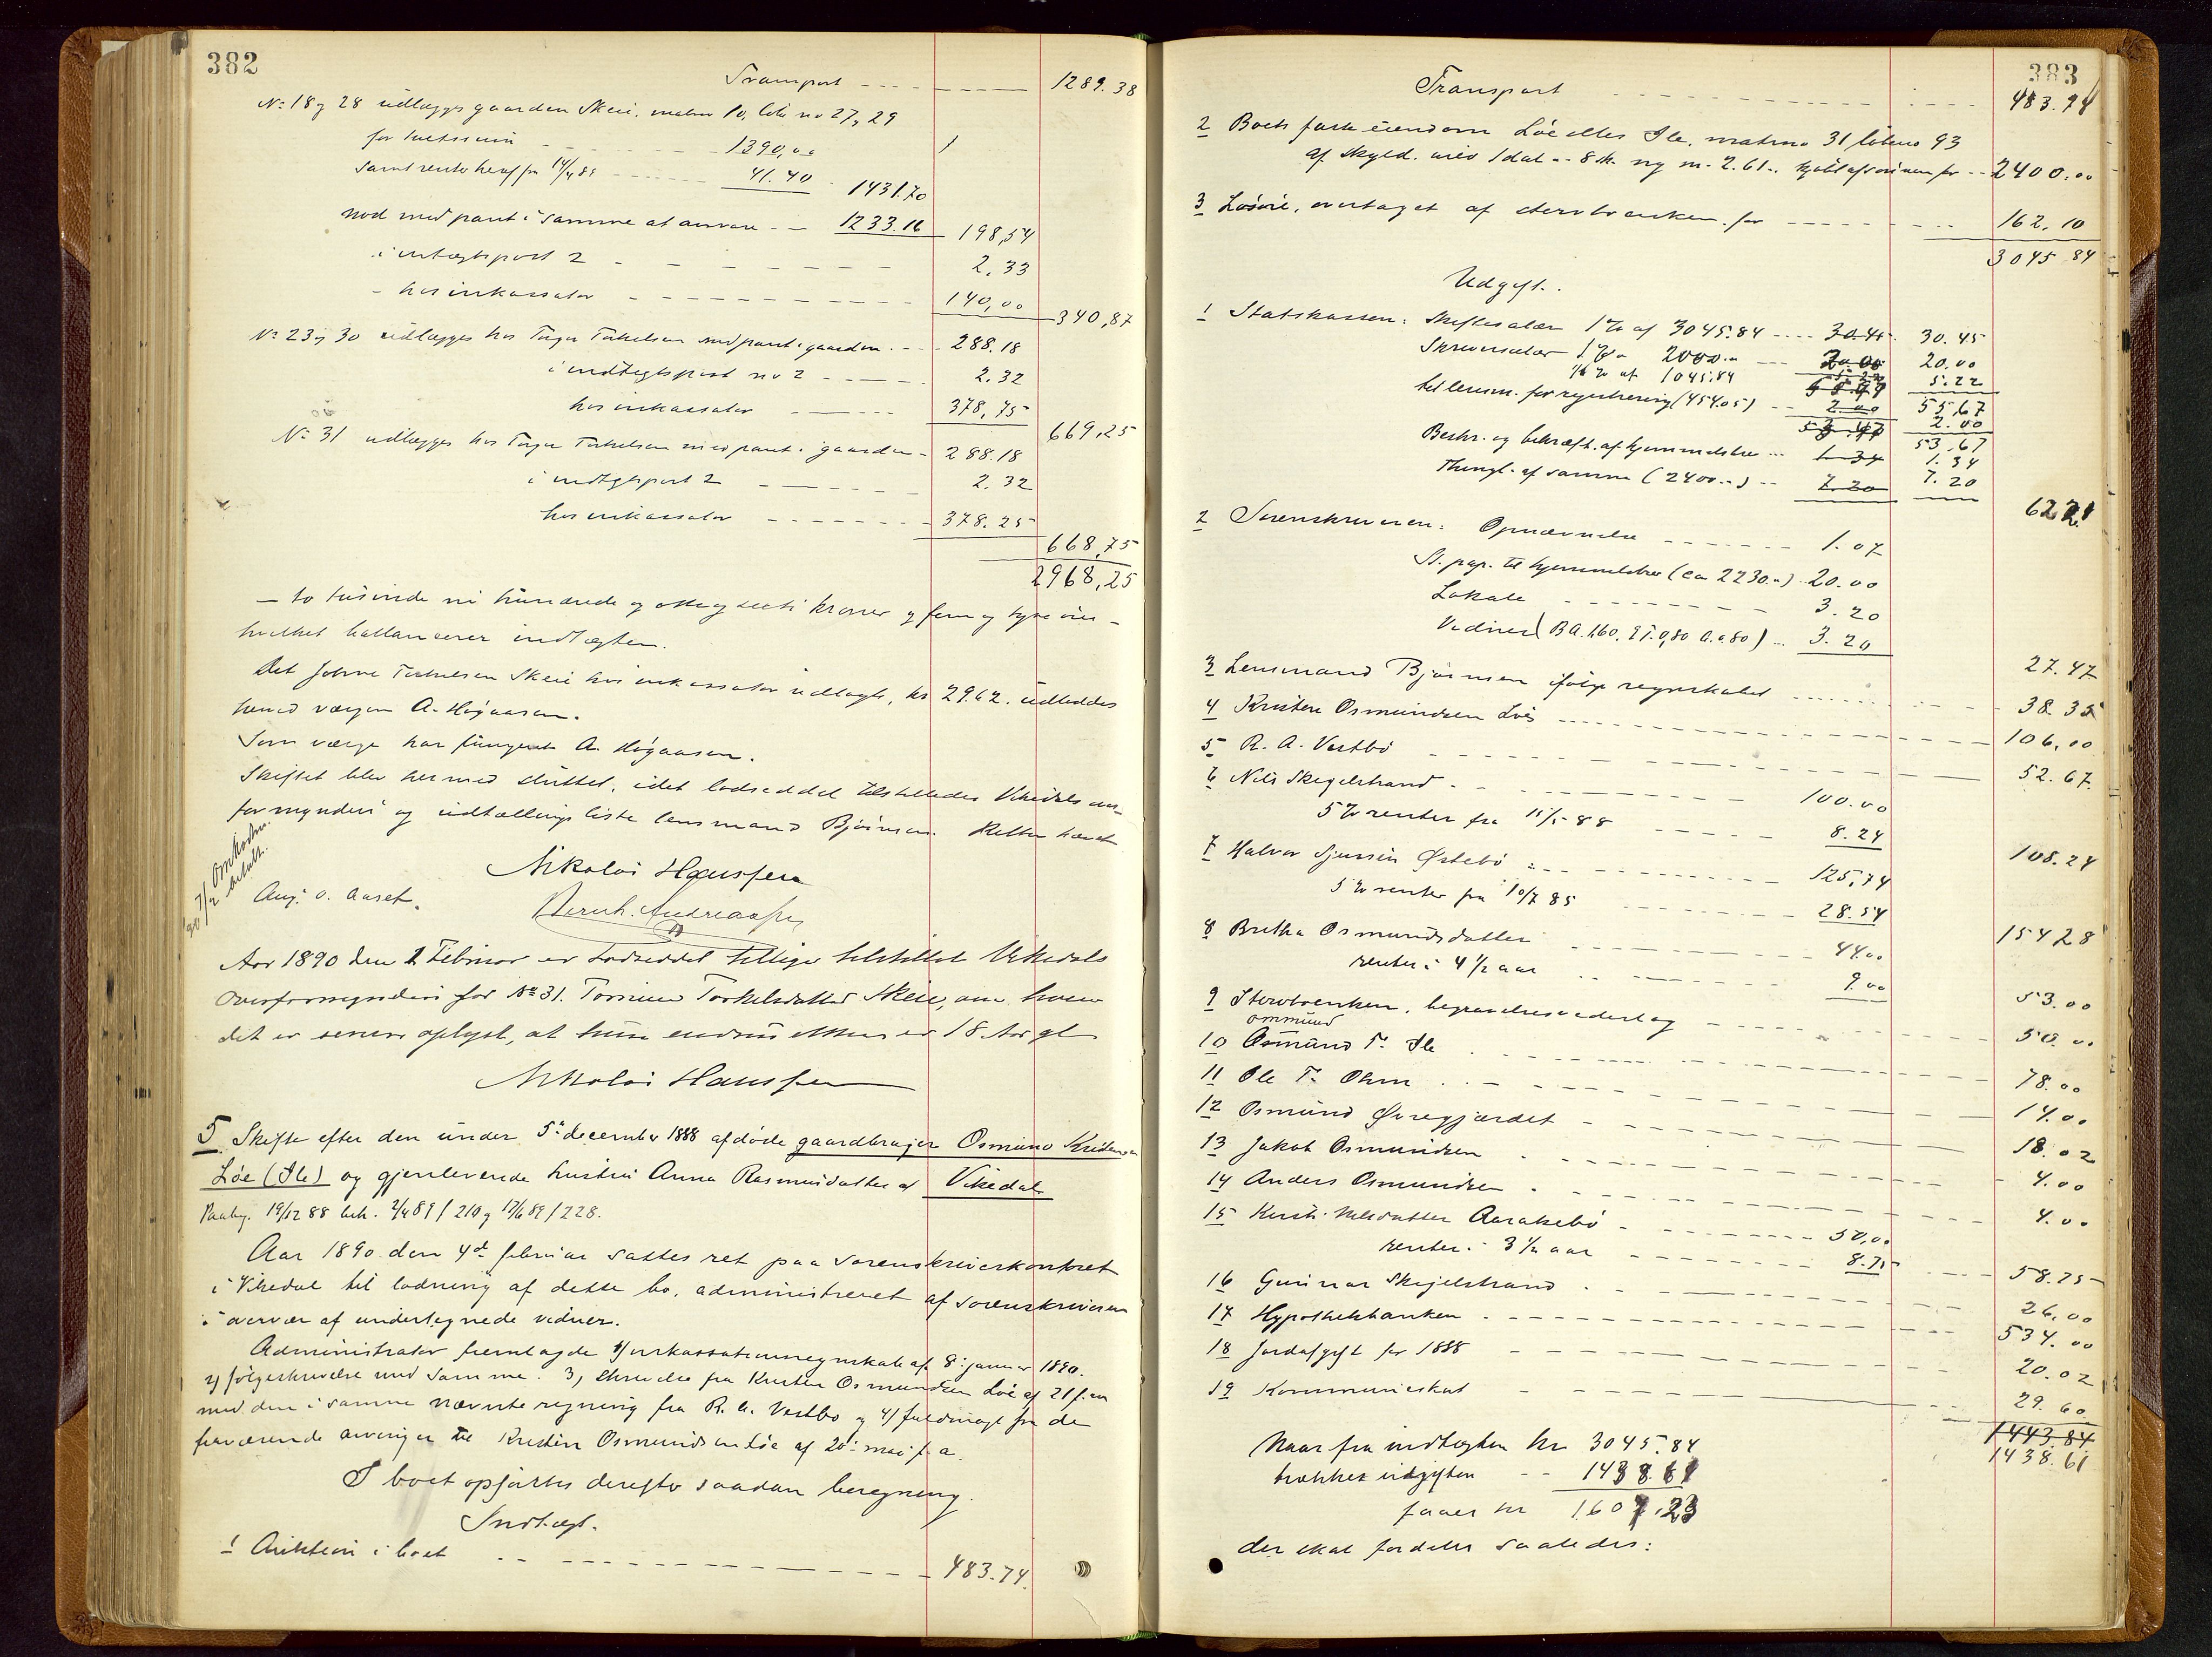 382
Transport 1289.38
No 18 og 28 udlægges gaarden Skeie, matno 10, løbeno 27, 29
for 1390,00
samt rente heraf fra 14/4 89 41.40 1431.70
mod med pant i samme at ansvare 1233.16 198,54
i indtægtspost 2 2.33
- hos inkassator 140,00 340,87
No 23 og 30 udlægges hos Torger Torkelsen med pant i gaarden 288.18
i indtægtspost no 2 2.32
hos inkassator 378,75 669,25
No 31 udlægges hos Torger Torkelsen med pant i gaarden 288.18
i indtægtspost 2 2.32
hos inkassator 378.25 668,75
2968,25
— to tusinde ni hundrede og otte og sexti kroner og fem og tyve øre —
hvilket ballancerer indtægten.
Det Johne Torkelsen Skeie hos inkassator udlagte, kr 29.62. udbeddes
herved værgen A. Høgaasen.
Som værge har fungeret A. Høgaasen.
Skiftet blev hermed sluttet, idet lodseddel tilstilledes Vikedals over-
formynderi og udtællingsliste lensmand Bjørnsen. Retten hævet
Nikolai Hanssen
Aug. O. Aaset. Bernh. Andreassen
7/2 90 Omkostn. betalt.
Aar 1890 den 1 Februar er Lodseddel tillige tilstillet Vikedals
Overformynderi for No 31. Torine Torkelsdatter Skeie, om hvem
det er senere oplyst, at hun endnu ikke er 18 Aar gl
Nikolai Hanssen
5. Skifte efter den under 5te december 1888 afdøde gaardbruger Osmund Kristensen
Løe (Ile) og gjenlevende hustru Anna Rasmusdatter af Vikedal
Paabeg. 19/12 88 beh. 2/4 89 / 210 og 17/6 89 / 228.
Aar 1890 den 4de februar sattes ret paa sorenskriverkontoret
i Vikedal til lodning af dette bo, administreret af sorenskriveren
i overvær af undertegnede vidner.
Administrator fremlagde 1) inkassationsregnskab af 8de januar 1890.
2) følgeskrivelse med samme. 3) skrivelse fra Kristen Osmundsen Løe af 21 f.m
med den i samme nævnte regning fra R. A. Vestbø og 4) fuldmagt fra de
fraværende arvinger til Kristen Osmundsen Løe af 20de mai f.a.
I boet opførtes derefter saadan beregning.
Indtægt.
1 Auktion i boet 483.74.
383
Transport 483.74
2 Boets faste eiendom Løe eller Ile, matrno 31 løbeno 93
af skyld urev 1 dal - 8 sk. ny m. 2.61. kjøbt af sønnen for 2400.00
3 Løsøre, overtaget af stervboenken for 162.10
3045 84
Udgift.
1 Statskassen: Skiftesalær 1% af 3045.84 30.45 30.45
Skriversalær 1% - 2000.- 20.00 20.00
1/2 % af 1045.84 5.22 5.22
55.67 55,67
til lensm. for registrering (454.05) 2.00 2.00
53.67 53,67
Beskr. og bekræft. af hjemmelsbrev 1.34 1.34
Thingl. af samme (2400..) 7.20 7.20 62 21
2 Sorenskriveren: Opnævnelse 1.07
St. pap. til hjemmelsbrev (ca 2230..) 20.00
Lokale 3.20
Vidner (BA. 1,60. ET. 0,80 A. 0.80) 3.20 27.47
3 Lensmand Bjørnsen ifølge regnskabet 38.35
4 Kristen Osmundsen Løe 106,00
5 R. A. Vestbø 52.67
6 Nils Skegelstrand 100.00
5 % renter fra 11/5 88 8.24 108.24
7 Halvor Sjursen Østebø 125,74
5 % renter fra 10/7 85 28.54 154 28
8 Bretha Osmundsdatter 44.00
renter i 4 1/2 aar 9.00 53.00
9 Stervboenken, begravelsesvederlag 50.00
10 Osmund T. Ile 78.00
ommund
11 Ole T. Ohm 14.00
12 Osmund Øvregjærdet 18.02
13 Jakob Osmundsen 4.00
14 Anders Osmundsen 4.00
15 Kirsti Nilsdatter Aarakebø 50,00
renter i 3 1/2 aar 8.75 58.75
16 Gunnar Skegelstrand 26,00
17 Hypothekbanken 534.00
18 Jordafgift for 1888 20.02
19 Kommuneskat 29.60
1443.84
1438.61
Naar fra indtægten kr 3045.84
trækkes udgiften - - 1438.61
faaes kr 1607.23
der skal fordeles saaledes: